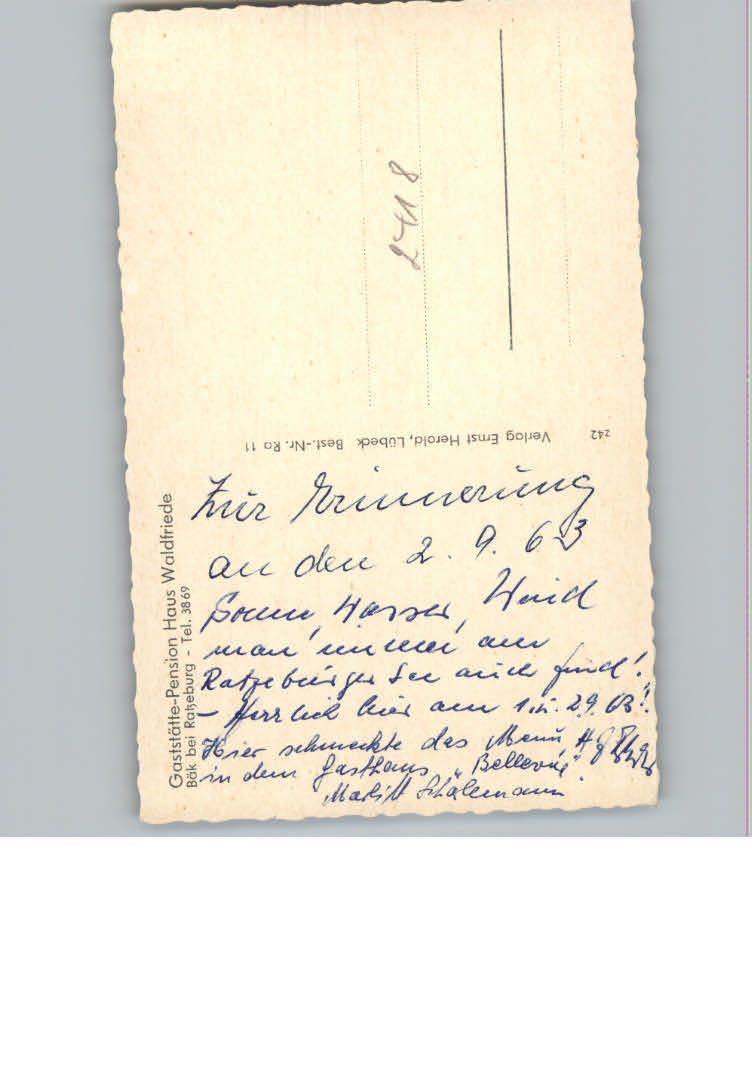 Gaststätte-Pension Haus Waldfriede
Bäk bei Ratzeburg - Tel. 3869
Verlag Ernst Herold, Lübeck Best.-Nr. Ra 11
Z42
2418
Zur Erinnerung
an den 2. 9. 63
Sonne, Wasser, Wind
man immer am
Ratzeburger See auch find'!
- Herrlich hier am 1. u. 2.9. 63!
Hier schmeckte das Menü
in dem Gasthaus "Bellevue".